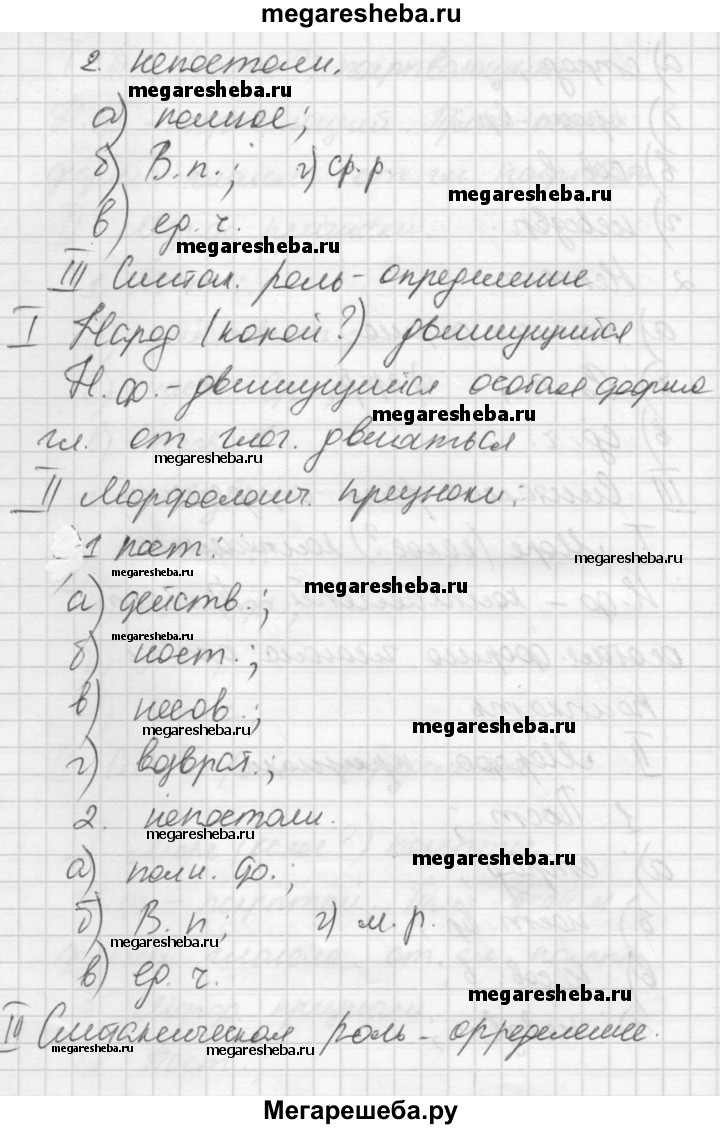 megaresheba.ru
2. непостоян.
megaresheba.ru
а) полное;
б) В.п.; г) ср.р.
megaresheba.ru
в) ед. ч.
megaresheba.ru
III Синтак. роль - определение
I Народ (какой?) движущийся
Н.ф. - движущийся особая форма
megaresheba.ru
гл. от глаг. двигаться
megaresheba.ru
II Морфологич. признаки:
1 пост:
megaresheba.ru
megaresheba.ru
megaresheba.ru
а) действ.;
megaresheba.ru
б) наст.;
в) несов.;
megaresheba.ru
megaresheba.ru
г) возврат.;
2. непостоян.
megaresheba.ru
megaresheba.ru
а) полн. ф.;
б) В. п; г) м. р.
megaresheba.ru
в) ед. ч.
megaresheba.ru
III Синтаксическая роль - определение.
megaresheba.ru
megaresheba.ru
Мегарешеба.ру